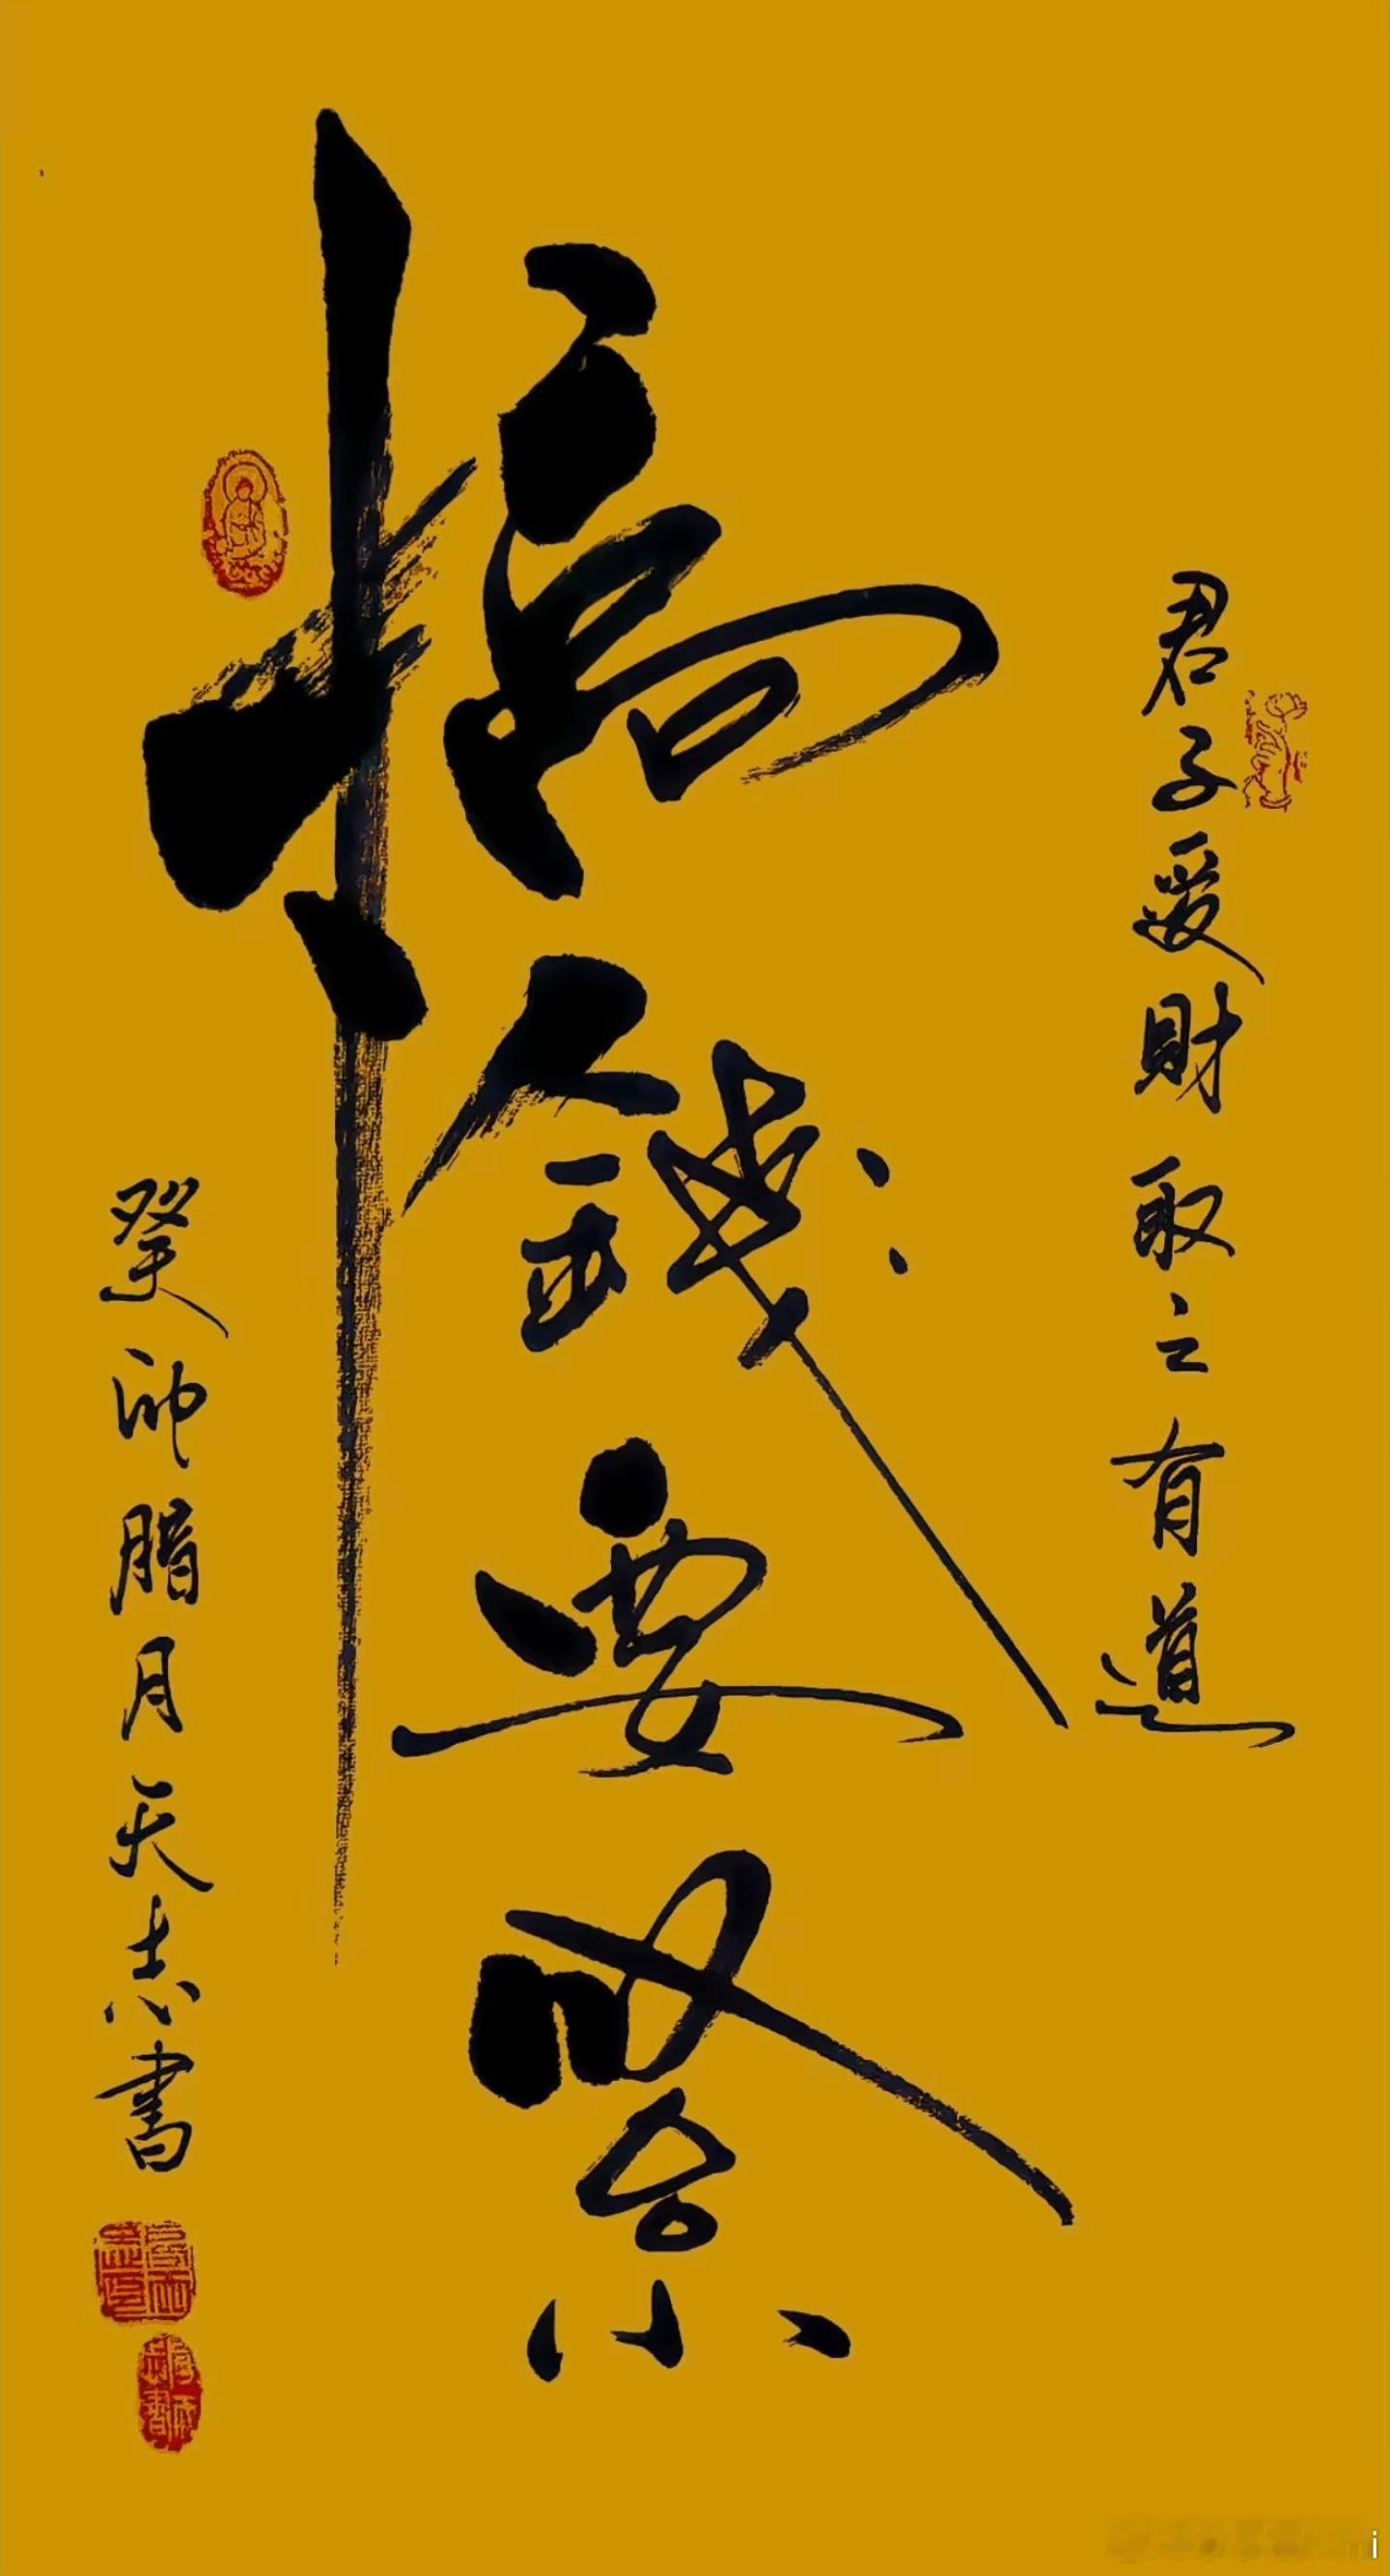 君子爱財取之有道
搞錢要緊
癸卯腊月天志書